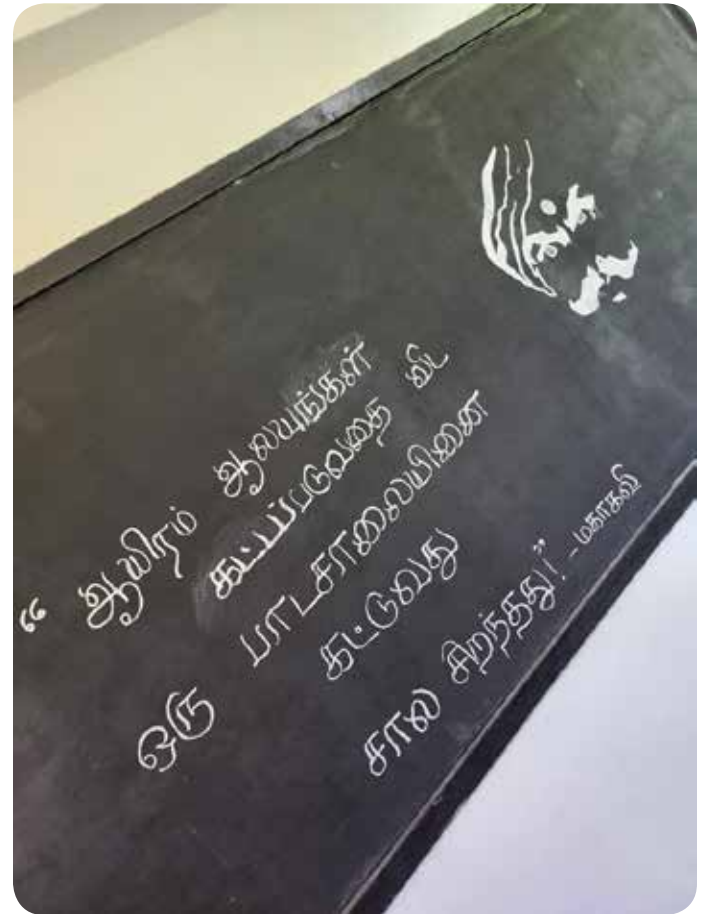 “ ஆயிரம் ஆலயங்கள்
கட்டப்படுவதை விட
ஒரு பாடசாலையினை
கட்டுவது
சால சிறந்தது!” - மகாகவி